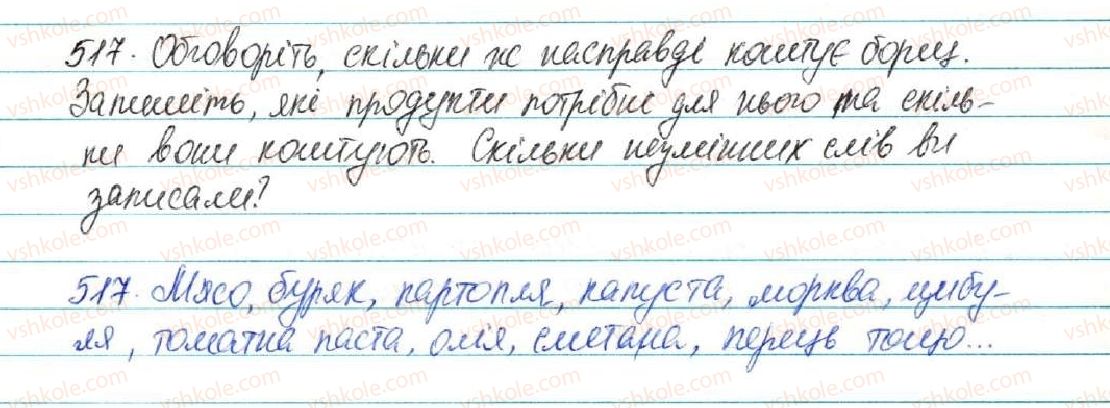 517. Обговоріть, скільки ж насправді коштує борщ.
Запишіть, які продукти потрібні для нього та скіль-
ки вони коштують. Скільки незмінних слів ви
записали?
517. Мясо, буряк, картопля, капуста, морква, цибу-
ля, томатна паста, олія, сметана, перець тощо...